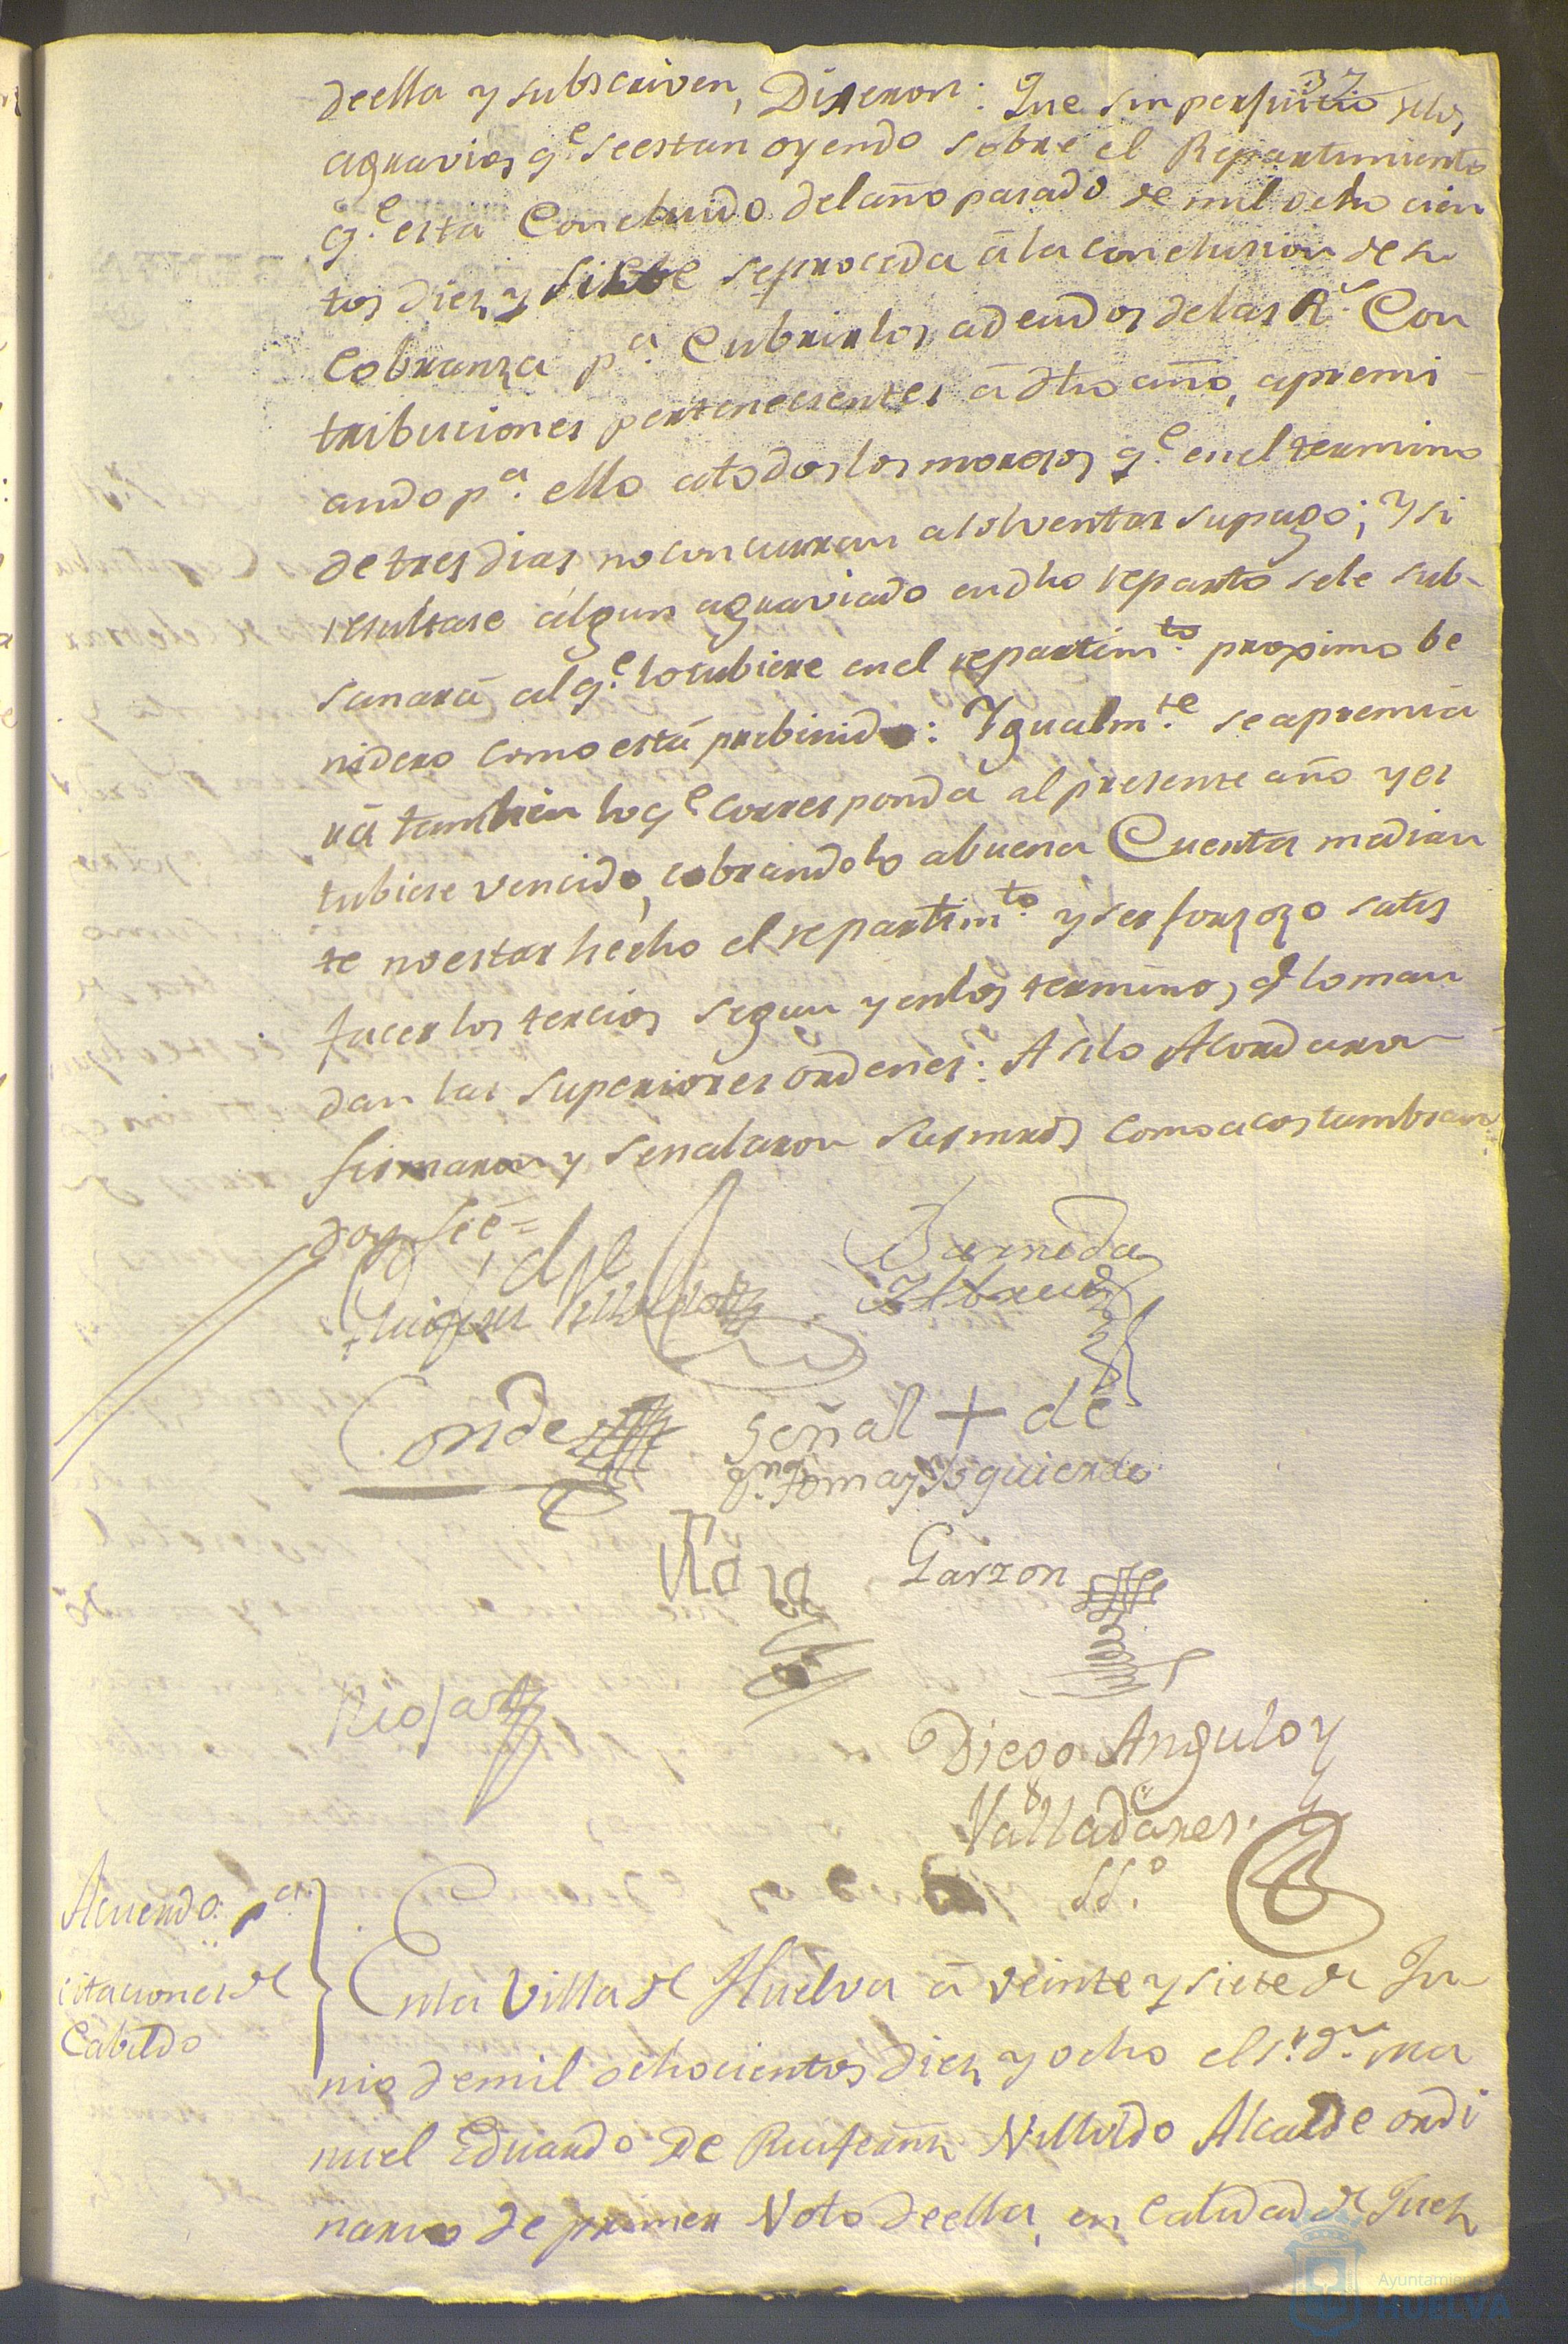 37
deella y subscriven, Dixeron: Que sin perjuicio delos
agravios q.e se estan oyendo sobre el Repartimiento
q.e esta Concluido del año pasado de mil ocho cien
tos diez y siete se proceda á la conclusion de su
Cobranza p.a Cubrir los adeudos de las R.s Con
tribuciones pertenecientes á dho año, apremi
ando p.a ello a todos los morosos q.e en el termino
de tres dias no concurran a solventar su pago; Y si
resultase algun agraviado en dho reparto se le sub-
sanará al q.e lo tubiere en el repartim.to proximo be
nidero como está prebinido: Ygualm.te se apremia
rá tambien lo q.e corresponda al presente año y es
tubiese vencido, cobrandolo a buena Cuenta median
te no estar hecho el repartim.to y ser forzozo satis
facer los tercios segun y en los terminos q.e lo man
dan las superiores ordenes: Asi lo Acordaron
firmaron y señalaron sus mrds como acostumbran
doy feé=
Barneda
Conde
señal + de
d.n Tomas Ysquierdo
Garzon
Diego Angulo y
Valladares.
SS.o
Acuerdo p.a
citaciones de
Cabildo
En la Villa de Huelva á veinte y siete de Ju-
nio de mil ochocientos diez y ocho el s.r d.n Ma
nuel Eduardo de Ruifernz Villoldo Alcalde ordi
nario de primer Voto deella, en Calidad de Juez
Ayuntamiento
HUELVA